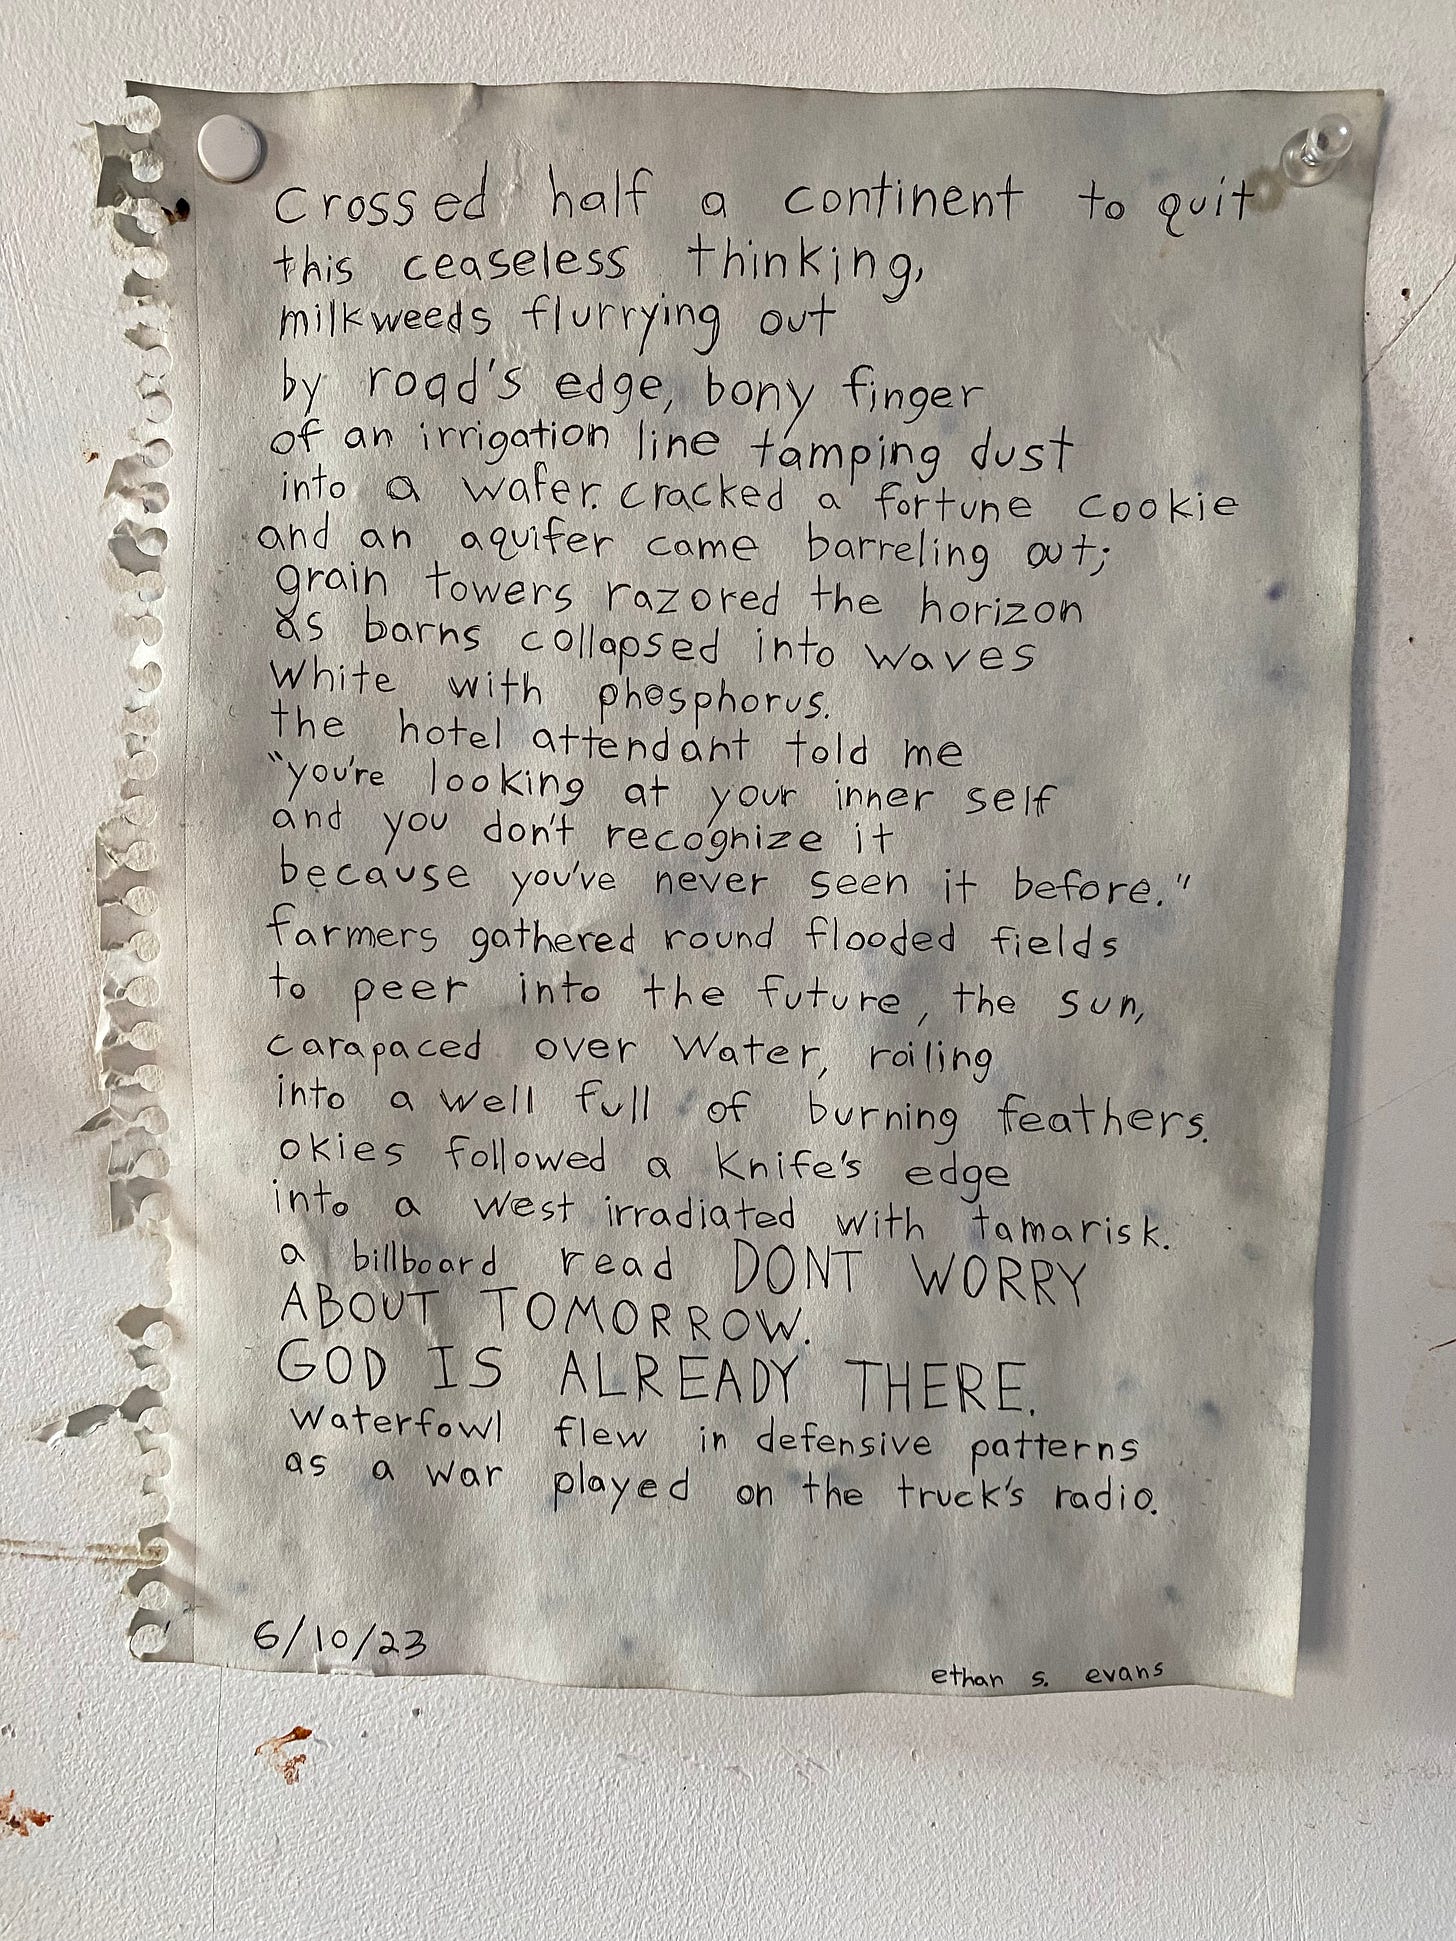 crossed half a continent to quit
this ceaseless thinking,
milkweeds flurrying out
by road's edge, bony finger
of an irrigation line tamping dust
into a wafer. cracked a fortune cookie
and an aquifer came barreling out;
grain towers razored the horizon
as barns collapsed into waves
white with phosphorus.
the hotel attendant told me
"you're looking at your inner self
and you don't recognize it
because you've never seen it before."
farmers gathered round flooded fields
to peer into the future, the sun,
carapaced over water, roiling
into a well full of burning feathers.
okies followed a knife's edge
into a west irradiated with tamarisk.
a billboard read DONT WORRY
ABOUT TOMORROW.
GOD IS ALREADY THERE.
waterfowl flew in defensive patterns
as a war played on the truck's radio.
6/10/23
ethan s. evans